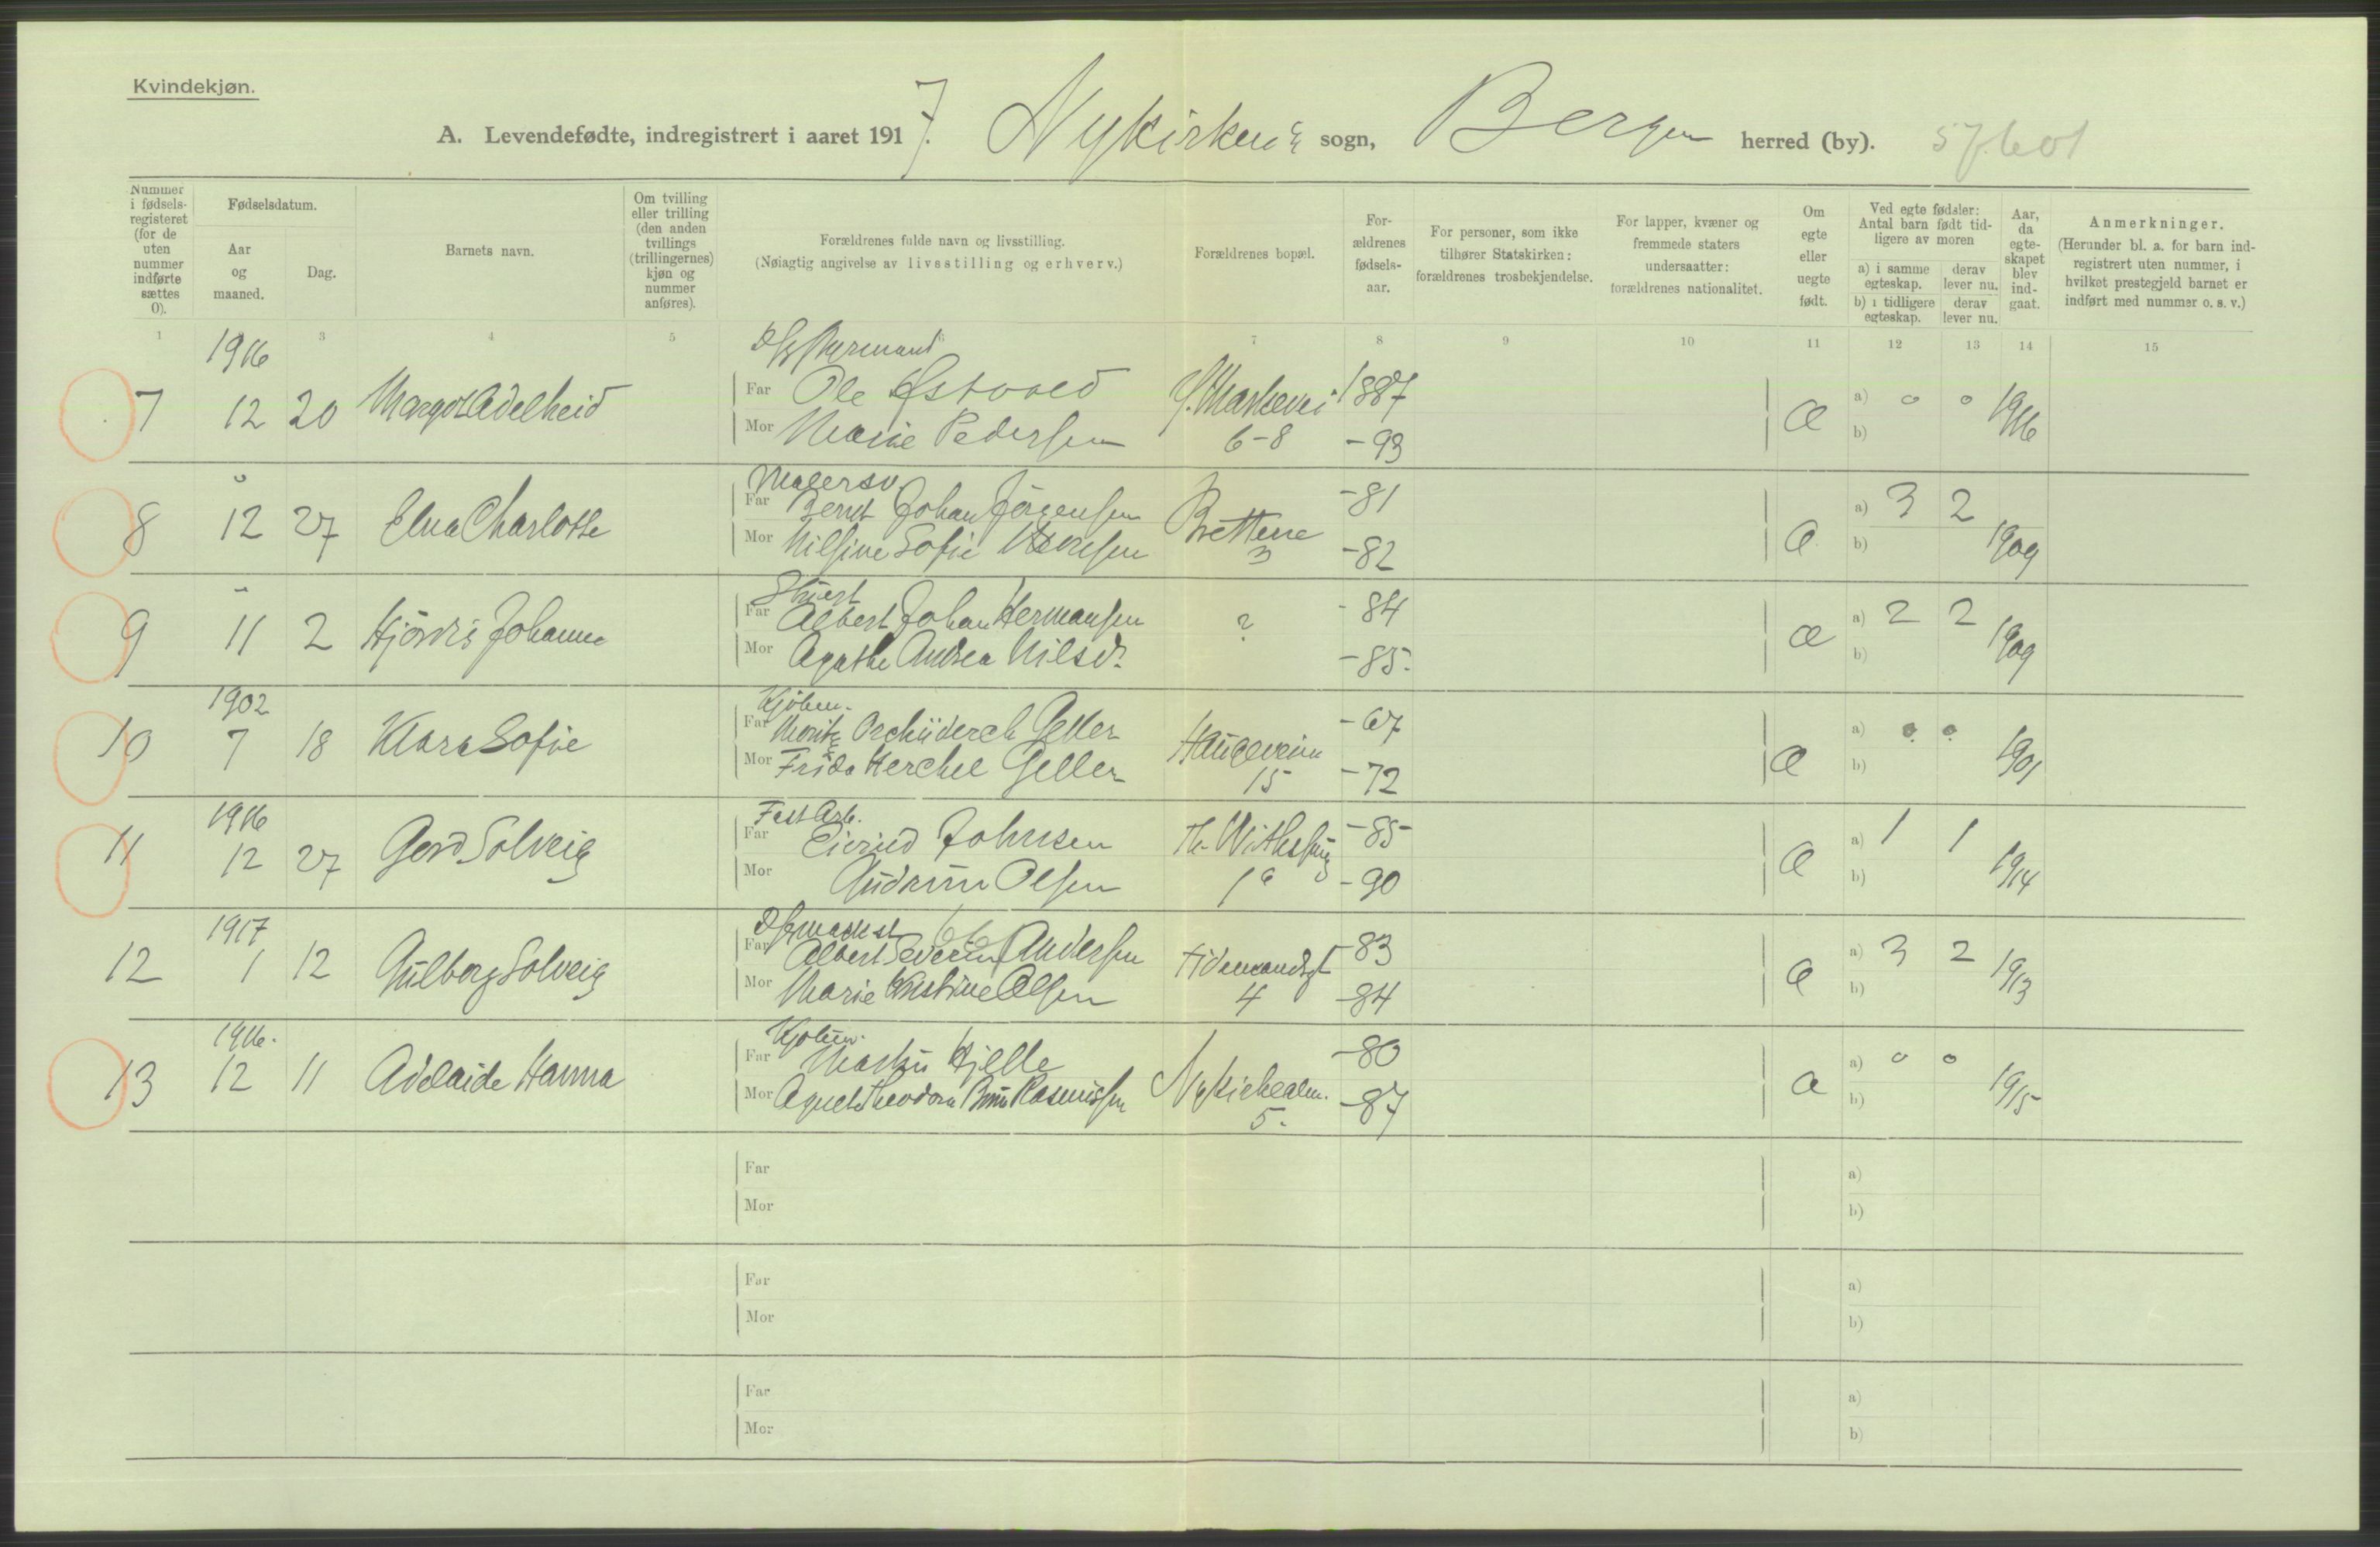 Kvindekjøn.
A. Levendefødte, indregistrert i aaret 1917. Nykirkens sogn, Bergen herred (by). 57601
Nummer i fødsels-registeret (for de uten nummer indførte sættes 0).
Fødselsdatum.
Aar og maaned.
Dag.
Barnets navn.
Om tvilling eller trilling (den anden tvillings (trillingernes) kjøn og nummer anføres).
Forældrenes fulde navn og livsstilling.
(Nøiagtig angivelse av livsstilling og erhverv.)
Forældrenes bopæl.
For-ældrenes fødsels-aar.
For personer, som ikke tilhører Statskirken: forældrenes trosbekjendelse.
For lapper, kvæner og fremmede staters undersaatter: forældrenes nationalitet.
Om egte eller uegte født.
Ved egte fødsler: Antal barn født tid-ligere av moren
a) i samme egteskap. derav lever nu.
b) i tidligere egteskap. derav lever nu.
Aar, da egte-skapet blev ind-gaat.
Anmerkninger.
(Herunder bl. a. for barn ind-registrert uten nummer, i hvilket prestegjeld barnet er indført med nummer o. s. v.)
1 3 4 5 6 7 8 9 10 11 12 13 14 15
1916
7 12 20 Margot Adelheid
Far Ole 1887
Mor Marie Pedersen 6-8 -93
æ a) 0 0 1916
b)
Malersv.
8 12 27 Elna Charlotte
Far Bernt Johan Jörgensen -81
Mor Nilsine Sofie 3 -82
æ a) 3 2 1909
b)
9 11 2 Hjördis Johanne
Far Albert Johan Hermansen ? -84
Mor Agathe Andrea Nilsd. -85.
æ a) 2 2 1909
b)
1902
Kjöbm.
10 7 18 Klara Sofie
Far Moritz Geller -67
Mor Frida Herchel Geller 15 -72
æ a) 0 0 1901
b)
1916
Fast Arb.
11 12 27 Gerd Solveig
Far Eivind Johnsen -85
Mor Gudrun Olsen 1a -90
æ a) 1 1 1914
b)
1917
12 1 12 Gulborg Solveig
Far Albert Severin Andersen Tidemandsgt -83
Mor Marie Kristine Olsen 4 -84
æ a) 3 2 1913
b)
1916.
Kjöbm.
13 12 11 Adelaide Hanna
Far Martin Hjelle -80
Mor Theodora Rasmussen Nykirkealm. 5. -87
æ a) 0 0 1915
b)
Far
Mor
a)
b)
Far
Mor
a)
b)
Far
Mor
a)
b)